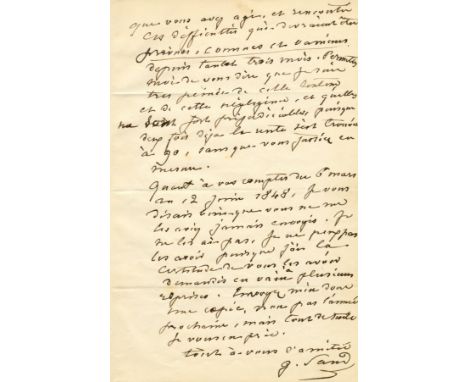 que vous avez agi, et rencontré
ces difficultés qui devraient être
prévues, connues et vaincues
depuis tantôt trois mois. Permettez
moi de vous dire que je suis
très peinée de cette lenteur
et de cette négligence, et qu'elles
me sont fort préjudiciables, puisque
deux fois déjà la rente s'est trouvée
à 90, sans que vous fussiez en
mesure.
Quant à vos comptes du 6 mars
au 12 juin 1848, je vous
disais que vous ne me
les aviez jamais envoyés. Je
ne les ai pas, je ne peux pas
les avoir puisque j'ai la
certitude de vous les avoir
demandés en vain à plusieurs
reprises. Envoyez m'en donc
une copie, non pas l'année
prochaine, mais tout de suite
je vous en prie.
tout à vous d'amitié
G. Sand